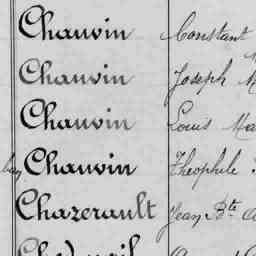 Chauvin Constant
Chauvin Joseph
Chauvin Louis
Chauvin Théophile
Chazerault Jean Bte